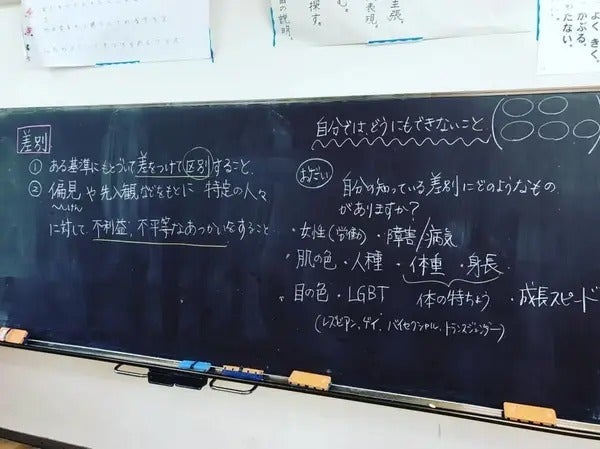 の説明。
探す。
む。
表現。
主張。
よくきく。
かぶる。
たない。
差別
① ある基準にもとづいて差をつけて区別すること。
② 偏見や先入観などをもとに特定の人々
へんけん
に対して不利益、不平等なあつかいをすること。
自分では、どうにもできないこと
おだい
自分の知っている差別にどのようなもの
がありますか?
・女性(労働) ・障害/病気
・肌の色 ・人種 ・体重 ・身長
・目の色 ・LGBT 体の特ちょう ・成長スピード
(レズビアン、ゲイ、バイセクシャル、トランスジェンダー)